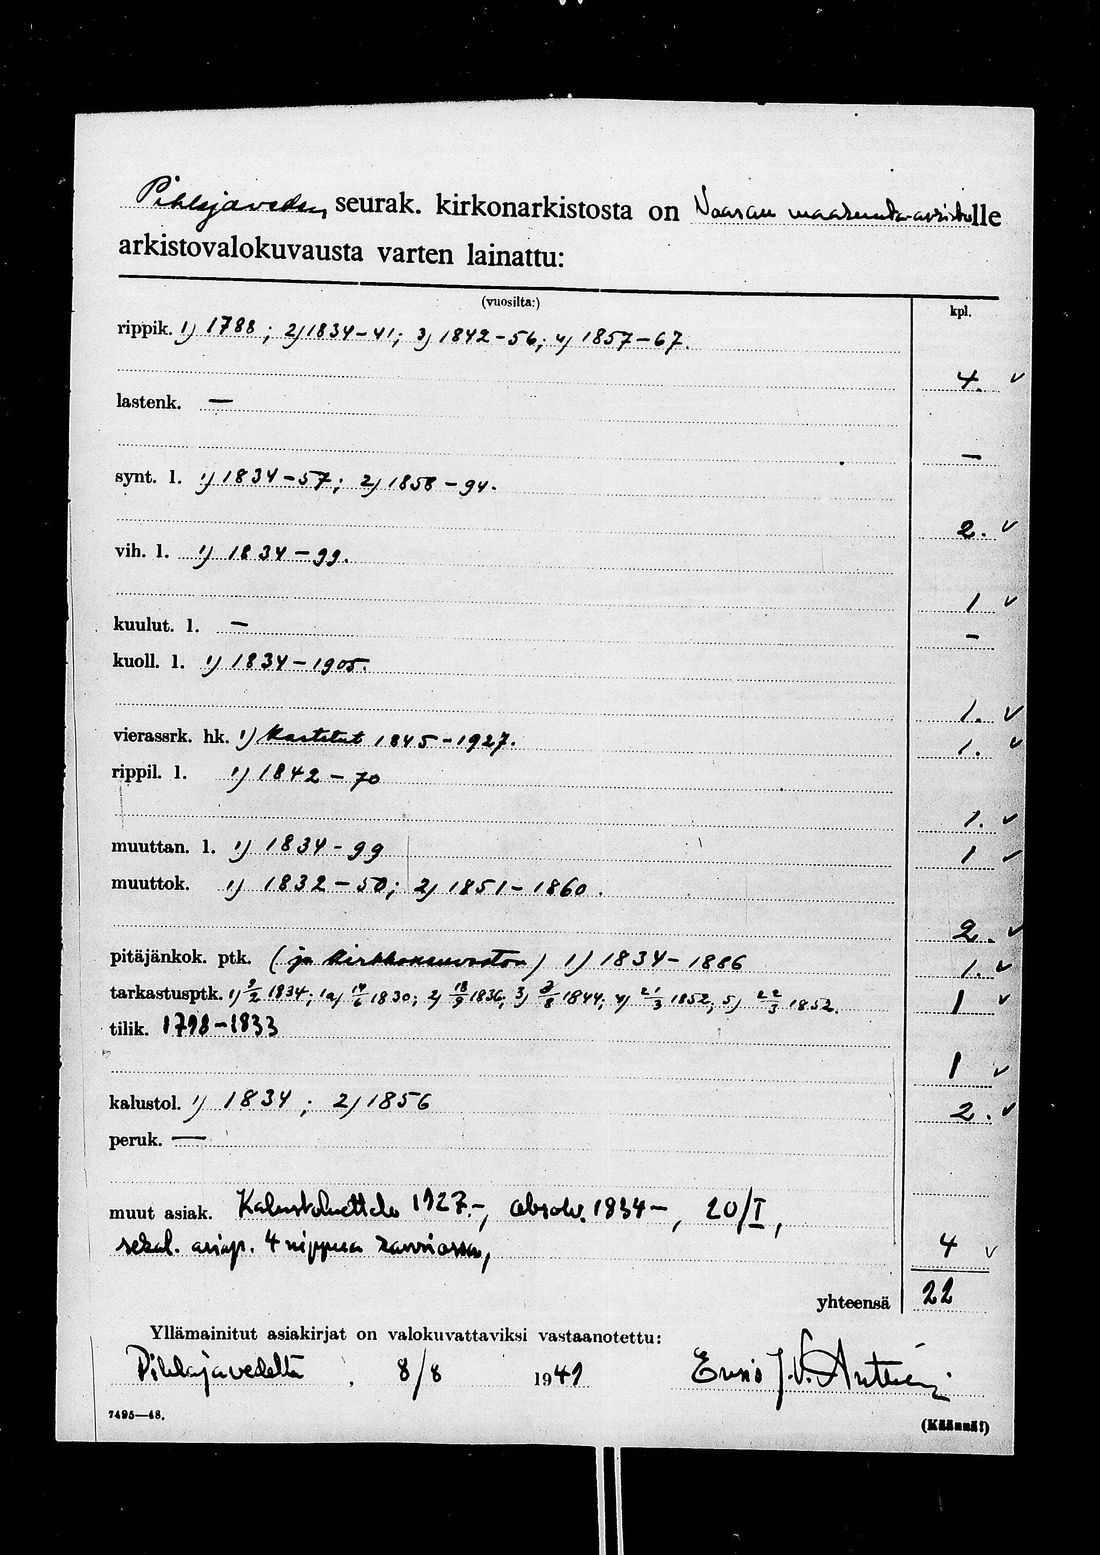 Pihlajaveden seurak. kirkonarkistosta on Vaasan maakunta-arkistolle
arkistovalokuvausta varten lainattu:
(vuosilta:) kpl.
rippik. 1) 1788; 2) 1834-41; 3) 1842-56; 4) 1857-67.
4. ✓
lastenk. —
—
synt. l. 1) 1834-57; 2) 1858-94.
2. ✓
vih. l. 1) 1834-99.
1 ✓
kuulut. l. — —
kuoll. l. 1) 1834-1905.
1. ✓
vierassrk. hk. 1) Kastetut 1845-1927. 1. ✓
rippil. l. 1) 1842-70
1. ✓
muuttan. l. 1) 1834-99 1 ✓
muuttok. 1) 1832-50; 2) 1851-1860.
2. ✓
pitäjänkok. ptk. (ja kirkkoneuvoston) 1) 1834-1886 1. ✓
tarkastusptk. 1) 1834; 1a) 1830; 2) 18/9 1836; 3) 1844; 4) 21/3 1852; 5) 22/3 1852. 1 ✓
tilik. 1798-1833
1 ✓
kalustol. 1) 1834; 2) 1856 2. ✓
peruk. —
muut asiak. Kalustoluettelo 1927-, absolv. 1834-, 20/I,
sekal. asiap. 4 nippua 4 ✓
yhteensä 22
Yllämainitut asiakirjat on valokuvattaviksi vastaanotettu:
Pihlajavedeltä, 8/8 1949
7495—48.
(Käännä!)